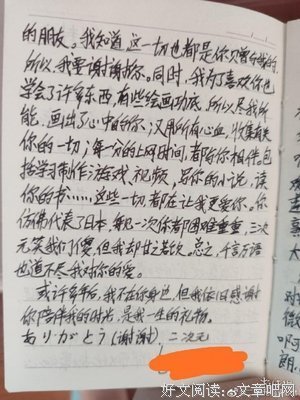 的朋友。我知道,这一切也都是你贝曾给我的,
所以,我要谢谢你。同时,我为了喜欢你也
学会了许多东西,有些绘画功底,所以尽我所
能,画出了心中的你;汉用所有心血,收集有关
你的一切;每一分的上网时间,都有你相伴。包
括学习制作游戏、视频,写你的小说,读
你的书……这些一切都在让我更爱你。你
仿佛代表了日本,每见一次你都困难重重,三次
元笑我们不懂,但我却甘若饮。总之,千言万语
也道不尽我对你的爱。
或许多年后,我不在你身边,但我依旧感谢
你陪伴我的时光,是我一生的礼物。
ありがとう(谢谢)二次元
好文阅读:@文章吧网